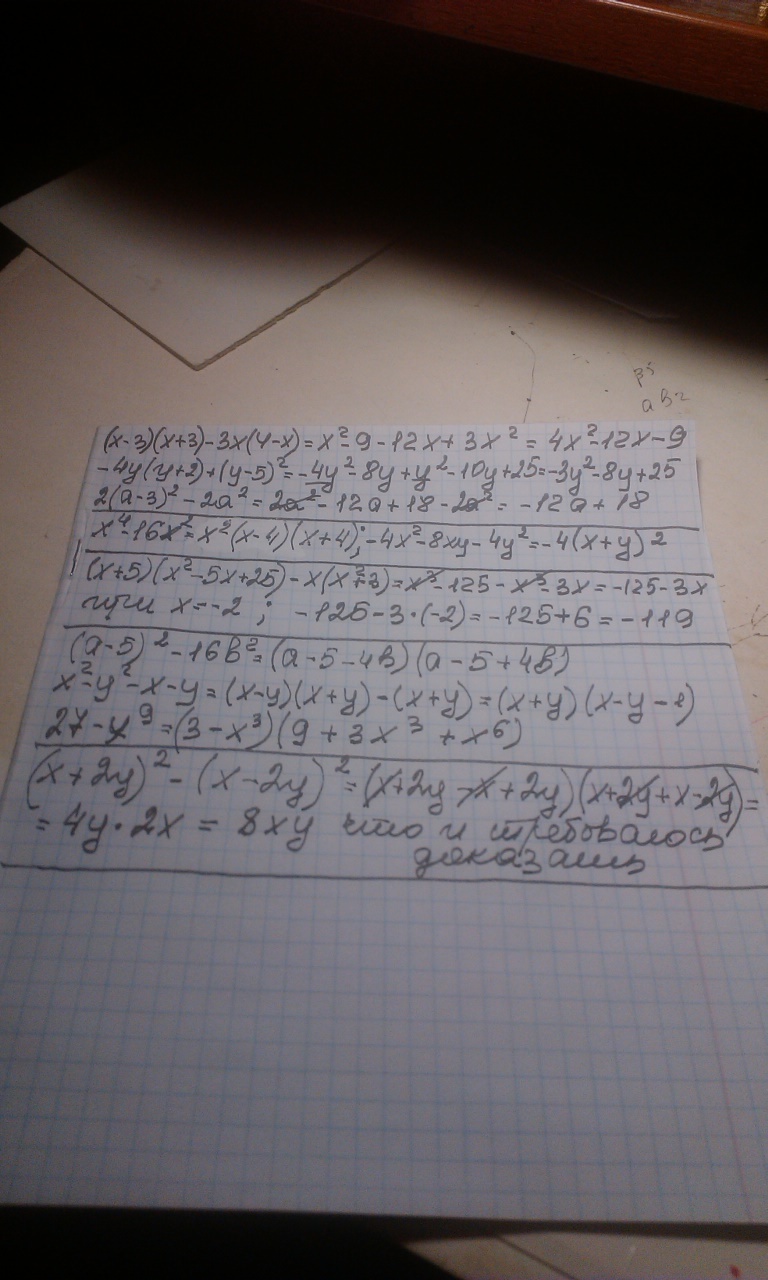 p5
ab2
(x-3)(x+3)-3x(4-x)=x²-9-12x+3x²=4x²-12x-9
-4y(y+2)+(y-5)²=-4y²-8y+y²-10y+25=-3y²-8y+25
2(a-3)²-2a²=2a²-12a+18-2a²=-12a+18
x⁴-16x²=x²(x-4)(x+4); -4x²-8xy-4y²=-4(x+y)²
(x+5)(x²-5x+25)-x(x²+3)=x³-125-x³-3x=-125-3x
при x=-2; -125-3·(-2)=-125+6=-119
(a-5)²-16b²=(a-5-4b)(a-5+4b)
x²-y²-x-y=(x-y)(x+y)-(x+y)=(x+y)(x-y-1)
27-y⁹=(3-x³)(9+3x³+x⁶)
(x+2y)²-(x-2y)²=(x+2y-x+2y)(x+2y+x-2y)=
=4y·2x=8xy что и требовалось
доказать